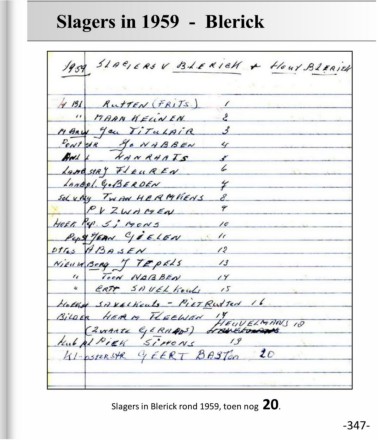 Slagers in 1959 - Blerick
1959 SLAGERS V BLERICK + HOUT BLERICK
H BL RUTTEN (FRITS) 1
" MAAN KEUNEN 2
MARIA Jeu TITULAIR 3
Pont STR Jo NABBEN 4
HANRAATS 5
LAMB STR J FLEUREN 6
LAMB pl. G. BERDEN 7
TWAN HERMKENS 8
P V ZWAMEN 9
HEER Pep SIMONS 10
Peps JEAN GIELEN 11
OTTOS A BASEN 12
NIEUW BORG J TEPELS 13
" TOON NABBEN 14
" ERTS SAVELKOULS 15
HOEKS SAVELKOULS - PIET RUTTEN 16
BILDER HARM TEEUWEN 17
(ZWARTE GERARD) HEUVELMANS 18
Kub pl PIEK SIMONS 19
KLOOSTERSTR GEERT BASTEN 20
Slagers in Blerick rond 1959, toen nog 20.
-347-